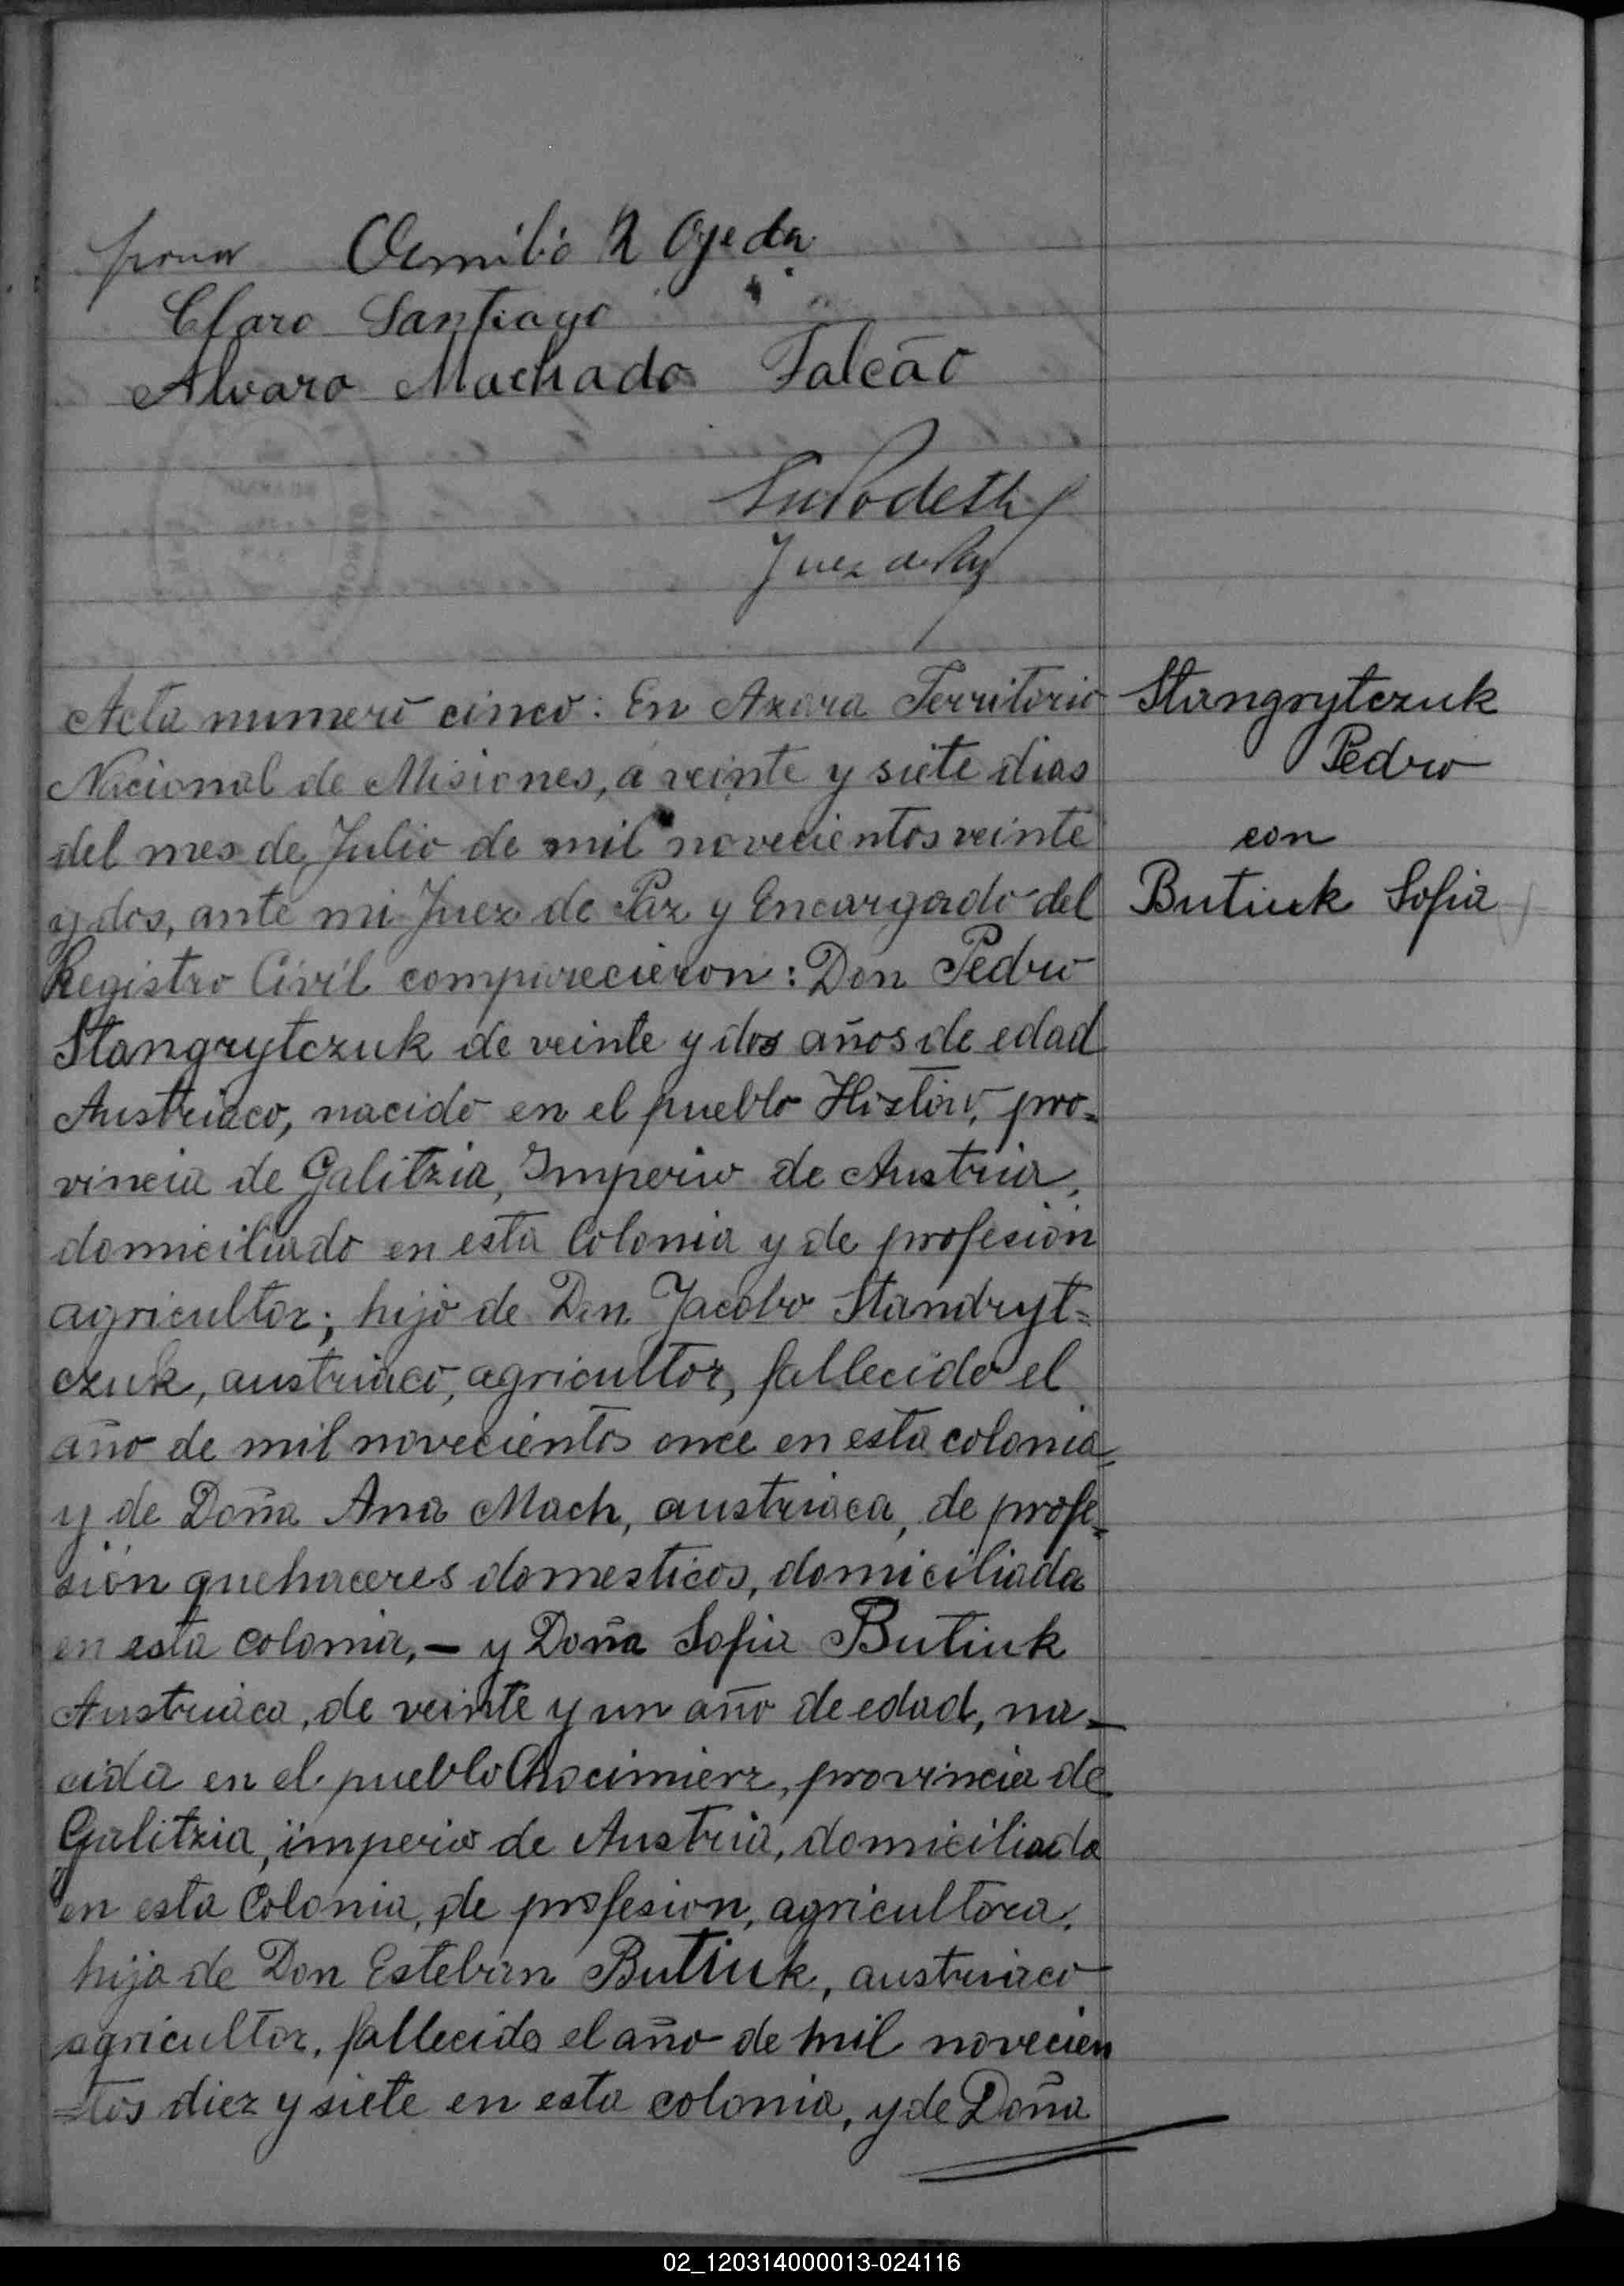 Emilio R Ojeda
Claro Santiago
Alvaro Machado Falcão
Juez de Paz
Stangrytczuk
Pedro
con
Butiuk Sofia
Acta numero cinco: En Azara Territorio
Nacional de Misiones, a veinte y siete dias
del mes de Julio de mil novecientos veinte
y dos, ante mi Juez de Paz y Encargado del
Registro Civil comparecieron: Don Pedro
Stangrytczuk de veinte y dos años de edad
Austriaco, nacido en el pueblo pro=
vincia de Galitzia, Imperio de Austria,
domiciliado en esta Colonia y de profesión
agricultor; hijo de Don Jacobo Standryt=
czuk, austriaco, agricultor, fallecido el
año de mil novecientos once en esta colonia
y de Doña Ana Mach, austriaca, de profe=
sión quehaceres domesticos, domiciliada
en esta colonia, – y Doña Sofia Butiuk
Austriaca, de veinte y un año de edad, na–
cida en el pueblo Chocimierz, provincia de
Galitzia, imperio de Austria, domiciliada
en esta Colonia, de profesion, agricultora,
hija de Don Esteban Butiuk, austriaco
agricultor, fallecido el año de mil novecien
=tos diez y siete en esta colonia, y de Doña
02_120314000013-024116